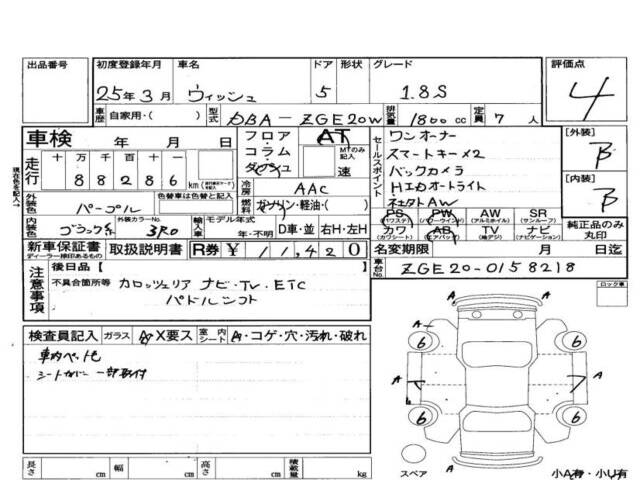 出品番号 初度登録年月 車名 ドア 形状 グレード 評価点
25年3月 ウィッシュ 5 1.8S 4
車歴 自家用・( ) 型式 DBA-ZGE20W 排気量 1800cc 定員 7人
車検 年 月 日 フロア・コラム・ダッシュ AT MTのみ記入 速
走行 十 万 千 百 十 一
88286 km
冷房 AAC
外装色 パープル 色替車は色替と記入
燃料 ガソリン・軽油・( )
内装色 ブラック系 外装カラーNo. 3R0 輸入車 モデル年式 年・不明 D車・並 右H・左H
セールスポイント
ワンオーナー
スマートキー×2
バックカメラ
HIDオートライト
社外AW
PS (パワステ) PW (パワーウインド) AW (アルミホイル) SR (サンルーフ)
カワ (カワシート) AB (エアバック) TV (地デジ) ナビ (ナビゲーション)
[外装] B
[内装] B
純正品のみ丸印
新車保証書 ディーラー検印あるもの 取扱説明書 R券 ¥11,420
名変期限 月 日迄
車台No. ZGE20-0158218
注意事項 後日品[ ]
不具合箇所等 カロッツェリア ナビ・TV・ETC
パドルシフト
ロック車
検査員記入 ガラス A X要ス 室内シート A・コゲ・穴・汚れ・破れ
車内ペット毛
シートカバー 一部取付
A
6 6
A A A
6 6
A
スペア
長さ cm 幅 cm 高さ cm 積載量 kg
小A有・小U有